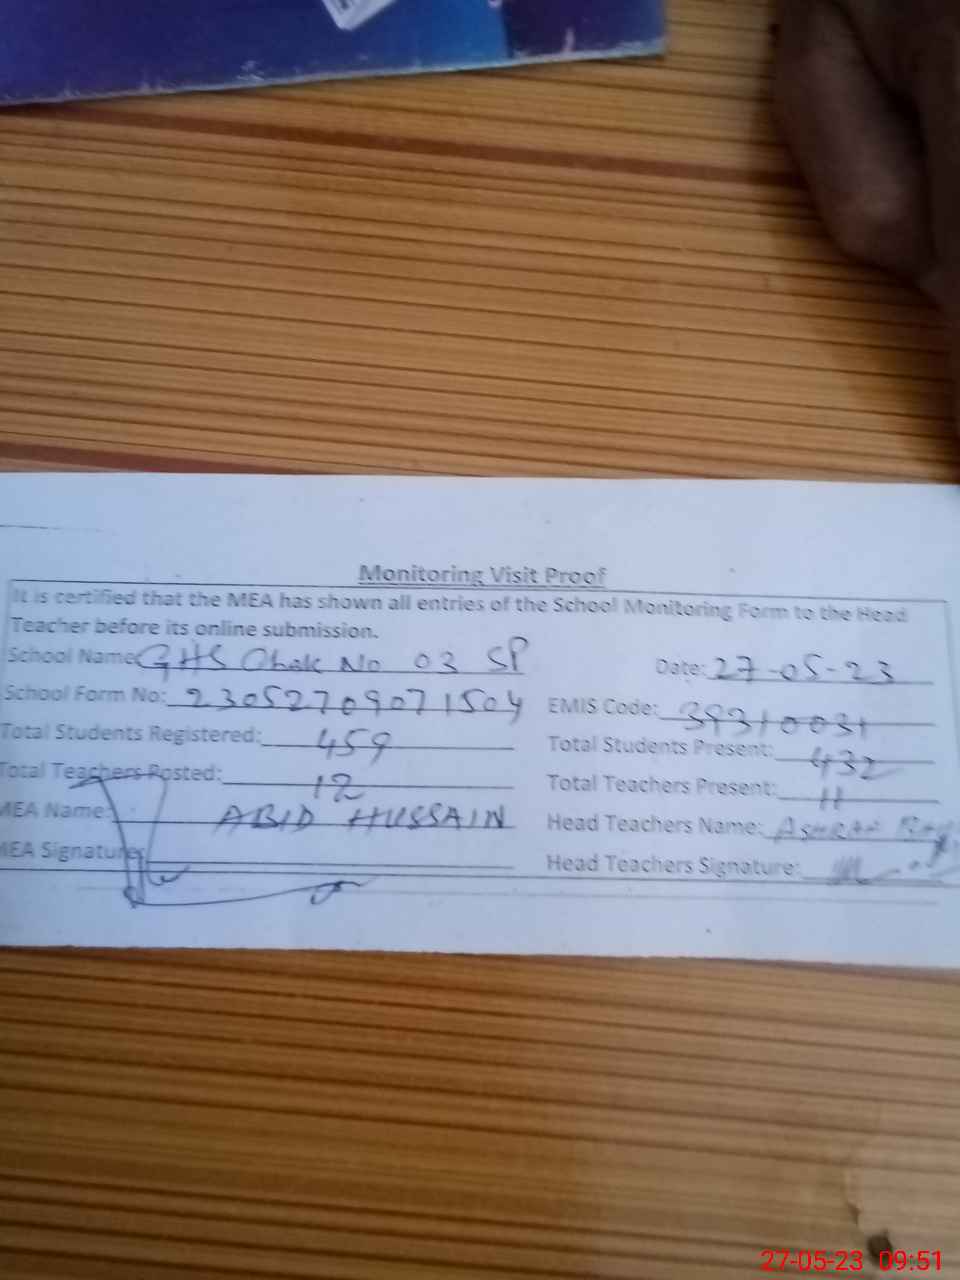 Monitoring Visit Proof
It is certified that the MEA has shown all entries of the School Monitoring Form to the Head
Teacher before its online submission.
School Name: GHS Chak No 03 SP Date: 27-05-23
School Form No: 23052709071504 EMIS Code: 39310031
Total Students Registered: 459 Total Students Present: 432
Total Teachers Posted: 12 Total Teachers Present: 11
MEA Name: ABID HUSSAIN Head Teachers Name:
MEA Signature: Head Teachers Signature:
27-05-23 09:51